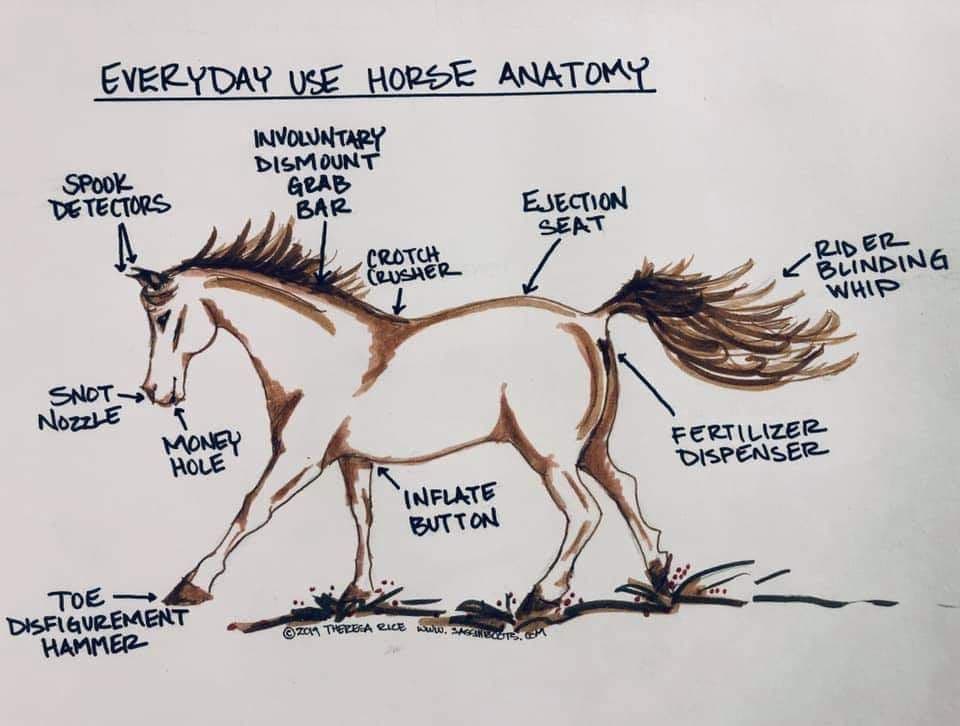 EVERYDAY USE HORSE ANATOMY
INVOLUNTARY
DISMOUNT
GRAB
BAR
SPOOK
DETECTORS
EJECTION
SEAT
CROTCH
CRUSHER
RIDER
BLINDING
WHIP
SNOT
NOZZLE
MONEY
HOLE
FERTILIZER
DISPENSER
INFLATE
BUTTON
TOE
DISFIGUREMENT
HAMMER
©2019 THERESA RICE www.